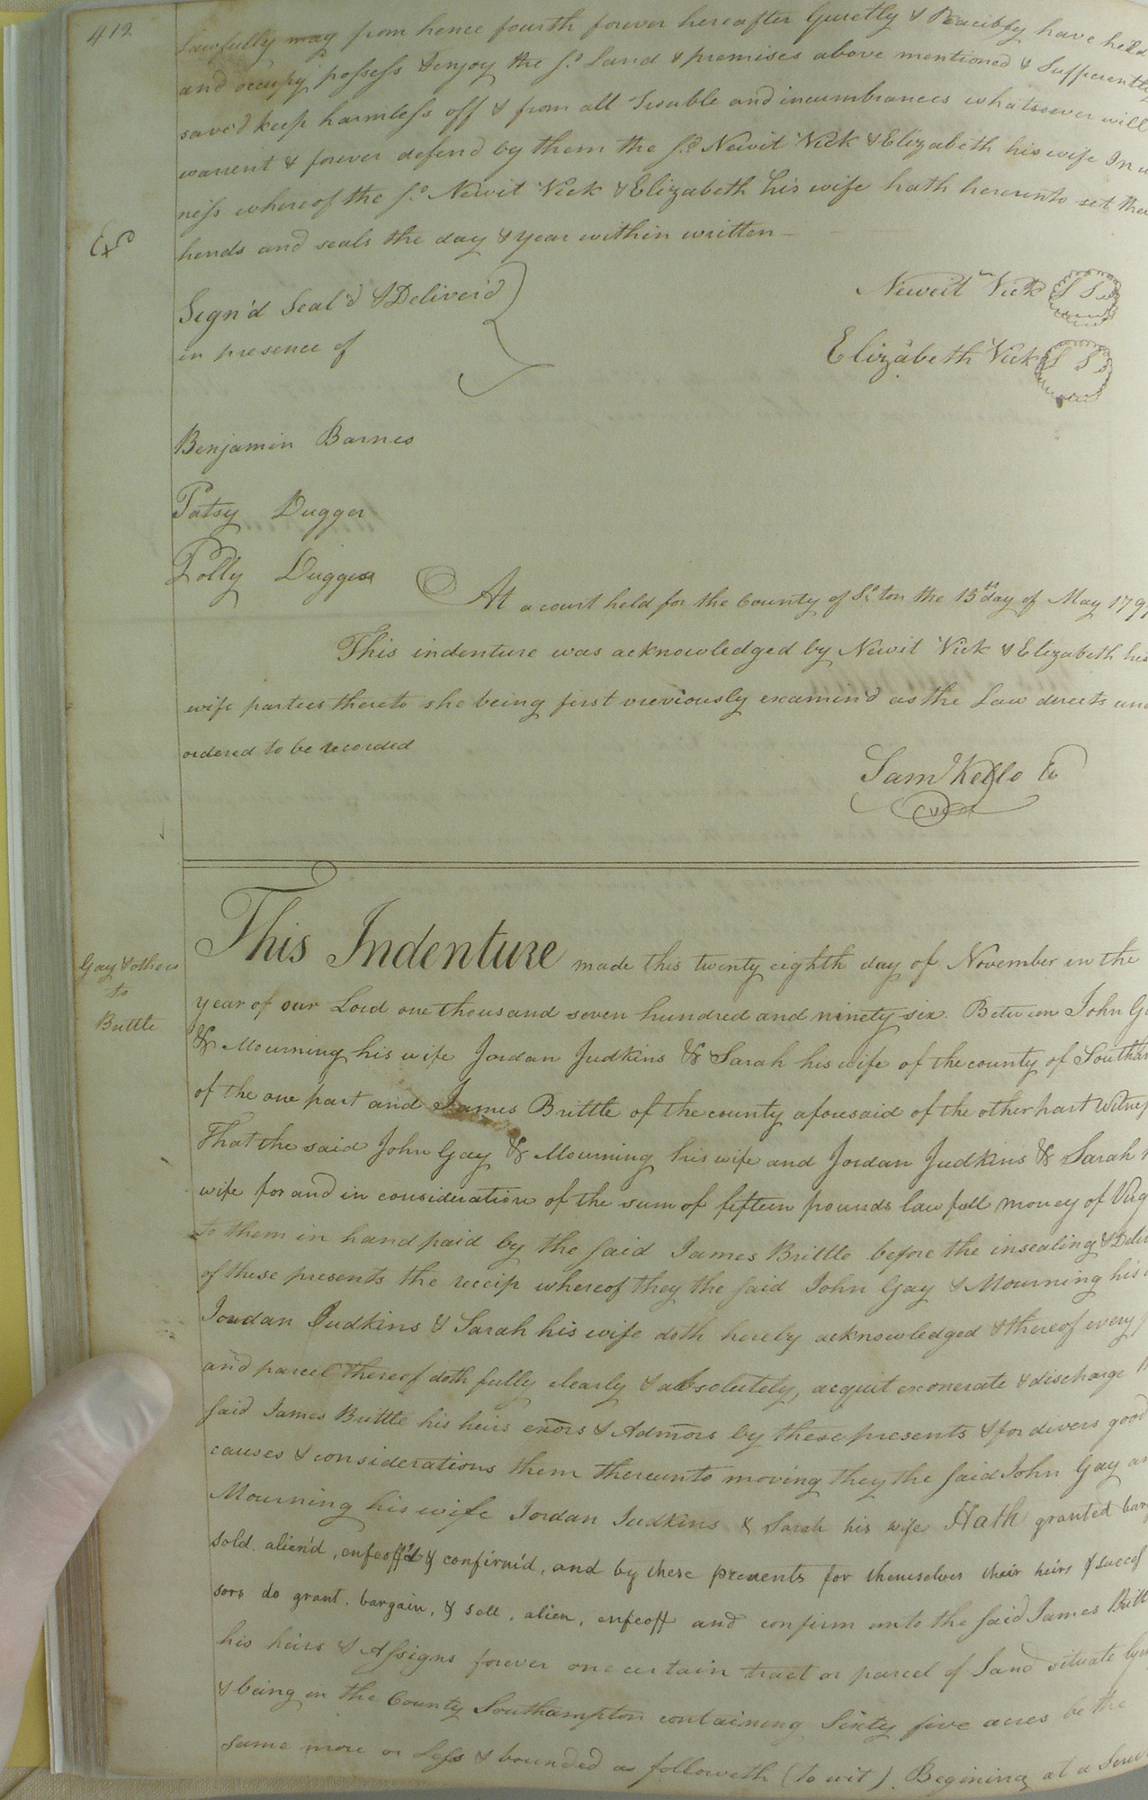 412
Lawfully may from hence fourth forever hereafter Quietly & Peacibly have held
and occupy possess & enjoy the sd. Land & premises above mentioned & Sufficently
saved keep harmless off & from all Trouble and incumbrances whatsoever will
warrent & forever defend by them the sd. Newit Vick & Elizabeth his wife In
ness whereof the sd. Newit Vick & Elizabeth his wife hath hereunto set
hends and seals the day & year within written
Newit Vick LS
Sign'd Seal'd & Deliver'd
in presence of
Elizabeth Vick LS
Benjamin Barnes
Patsy Dugger
Polly Dugger
At a court held for the County of So.ton the 15th day of May 179
This indenture was acknowledged by Newit Vick & Elizabeth his
wife parties thereto she being first previously examin'd as the Law directs and
ordered to be recorded
Saml Kello
Gay & others
to
Brittle
This Indenture made this twenty eighth day of November in the
year of our Lord one thousand seven hundred and ninety six. Between John
& Mourning his wife Jordan Judkins & Sarah his wife of the county of
of the one part and James Brittle of the county aforesaid of the other part
That the said John Gay & Mourning his wife and Jordan Judkins & Sarah
wife for and in consideration of the sum of fifteen pounds lawfull money of
to them in hand paid by the said James Brittle before the insealing &
of these presents the receip whereof they the said John Gay & Mourning his
Jordan Judkins & Sarah his wife doth hereby acknowledged & thereof every
and parcel thereof doth fully clearly & absolutely, acquit exonerate & discharge
said James Brittle his heirs exors & Admors by these presents & for divers good
causes & considerations them thereunto moving they the said John Gay
Mourning his wife Jordan Judkins & Sarah his wife Hath granted
sold. alien'd, enfeoff'd & confirm'd, and by these presents for themselves their heirs &
sors do grant, bargain, & sell, alien, enfeoff and confirm unto the said James
his heirs & Assigns forever one certain tract or parcel of Land situate
& being in the County Southampton containing Sixty five acres be the
same more or less & bounded as followeth (to wit). Begining at a